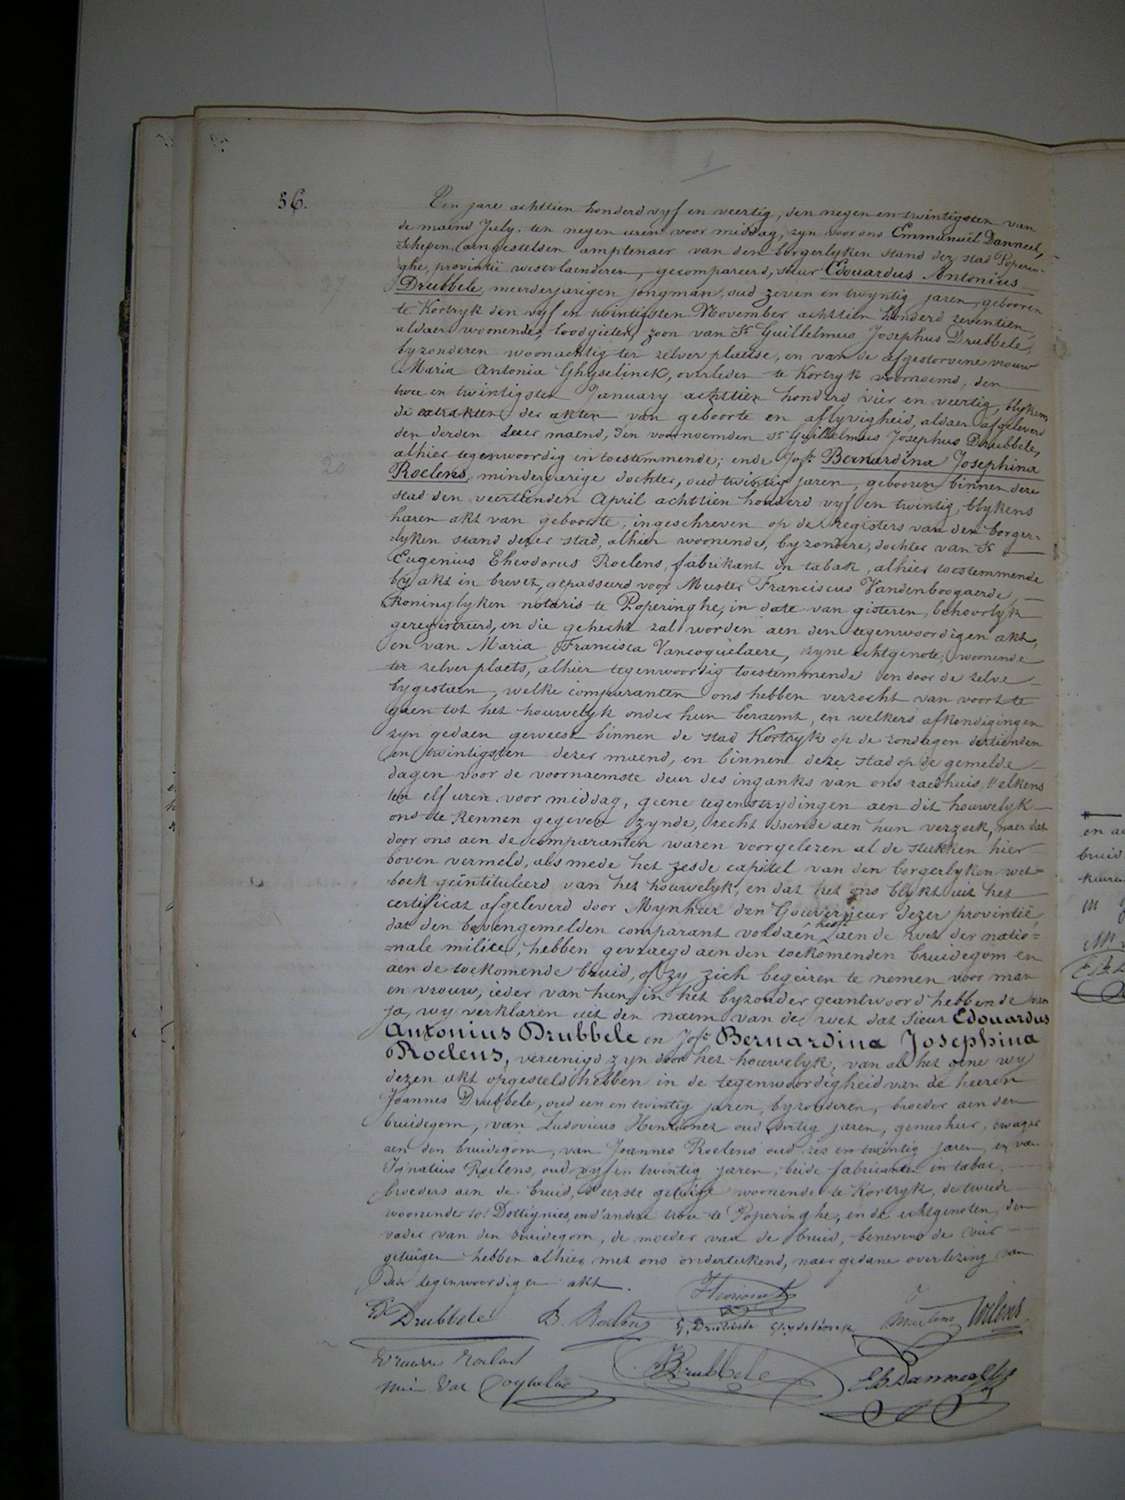 36.
Ten jare achttien honderd vyf en veertig, den negen en twintigsten van
de maend July, ten negen uren voor middag, zyn voor ons Emmanuel Danneel,
Schepen aengestelden amptenaer van den borgerlyken stand der stad Poperin-
ghe, provintie westvlaenderen, gecompareerd, sieur Edouardus Antonius
Drubbele, meerderjarigen jongman, oud zeven en twyntig jaren, gebooren
te Kortryk den vyf en twintigsten November achttien honderd zeventien,
aldaer woonende, loodgieter, zoon van Sr Guillelmus Josephus Drubbele,
byzonderen woonachtig ter zelver plaetse, en van de afgestorvene vrouw
Maria Antonia Ghyselinck, overleden te Kortryk voornoemd, den
twee en twintigsten January achttien honderd vier en veertig, blykens
de extrakten der akten van geboorte en aflyvigheid, aldaer afgeleverd
den derden dezer maend, den voornoemden Sr Guillelmus Josephus Drubbele,
alhier tegenwoordig en toestemmende; ende Jofe Bernardina Josephina
Roelens, minderjarige dochter, oud twintig jaren, gebooren binnen deze
stad den veertienden April achttien honderd vyf en twintig, blykens
haren akt van geboorte, ingeschreven op de registers van den borger-
lyken stand dezer stad, alhier woonende, byzondere, dochter van Sr
Eugenius Theodorus Roelens, fabrikant in tabak, alhier toestemmende
by akt in brevet, gepasseerd voor Meester Franciscus Vandenboogaerde,
koninglyken notaris te Poperinghe, in date van gisteren, behoorlyk
geregistreerd, en die gehecht zal worden aen den tegenwoordigen akt,
en van Maria Francisca Vancoquelaere, zyne echtgenote, woonende
ter zelver plaets, alhier tegenwoordig toestemmende en door de zelve
bygestaen, welke comparanten ons hebben verzocht van voort te
gaen tot het houwelyk onder hun beraemt, en welkers afkondigingen
zyn gedaen geweest binnen de stad Kortryk op de zondagen dertienden
en twintigsten dezer maend, en binnen deze stad op de gemelde
dagen voor de voornaemste deur des inganks van ons raedhuis, elkens
ten elf uren voor middag, geene tegenstrydingen aen dit houwelyk
ons te kennen gegeven zynde, recht doende aen hun verzoek, naer dat
door ons aen de comparanten waren voorgelezen al de stukken hier
boven vermeld, als mede het zesde capitel van den borgerlyken wet-
boek geïntituleerd van het houwelyk, en dat het ons blykt uit het
certificat afgeleverd door Mynheer den Gouverneur dezer provintie,
dat den bovengemelden comparant voldaen heeft aen de wet der natio-
nale milicie, hebben gevraegd aen den toekomenden bruidegom en
aen de toekomende bruid, of zy zich begeiren te nemen voor man
en vrouw, ieder van hun in het byzonder geantwoord hebbende van
ja, wy verklaren uit den naem van de wet dat sieur Edouardus
Antonius Drubbele en Jofe Bernardina Josephina
Roelens, vereenigd zyn door het houwelyk, van al het gene wy
dezen akt opgesteld hebben in de tegenwoordigheid van de heeren
Joannes Drubbele, oud een en twintig jaren, byzonderen, broeder aen den
bruidegom, van Ludovicus oud dertig jaren, genieskur, zwager
aen den bruidegom, van Joannes Roelens oud zes en twintig jaren, en van
Ignatius Roelens, oud vyf en twintig jaren, beide fabricanten in tabac,
broeders aen de bruid, d'eerste getuige woonende te Kortryk, de tweede
woonende tot Dottignies, en d'andere twee te Poperinghe, en de echtgenoten, den
vader van den bruidegom, de moeder van de bruid, benevens de vier
getuigen hebben alhier met ons onderteekend, naer gedane overlezing van
den tegenwoordigen akt.
Ed Drubbele B. Roelens G. Drubbele Ghyselinck Roelens
Roelens Drubbele E. Danneel